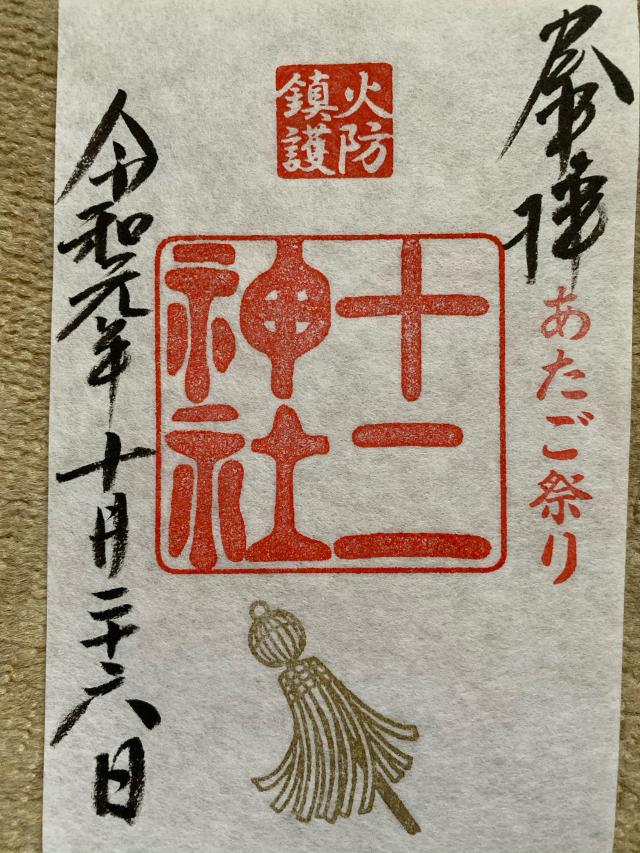 奉拝
あたご祭り
火防
鎮護
十二
神社
令和元年十月二十六日